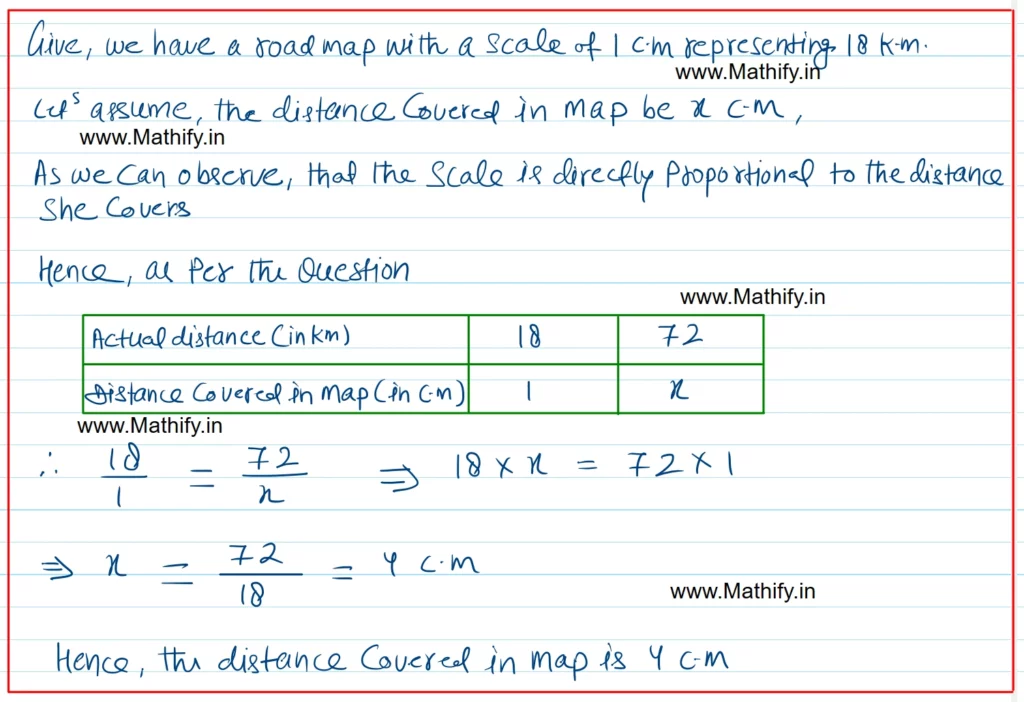 Give, we have a road map with a scale of 1 c.m representing 18 k.m.
www.Mathify.in
Let's assume, the distance Covered in map be x c-m,
www.Mathify.in
As we Can observe, that the Scale is directly Proportional to the distance
She Covers
Hence, as Per the Question
www.Mathify.in
Actual distance (in km) 18 72
Distance Covered in map (in c.m) 1 x
www.Mathify.in
∴ 18/1 = 72/x ⇒ 18 × x = 72 × 1
⇒ x = 72/18 = 4 c.m
www.Mathify.in
Hence, the distance Covered in map is 4 c-m